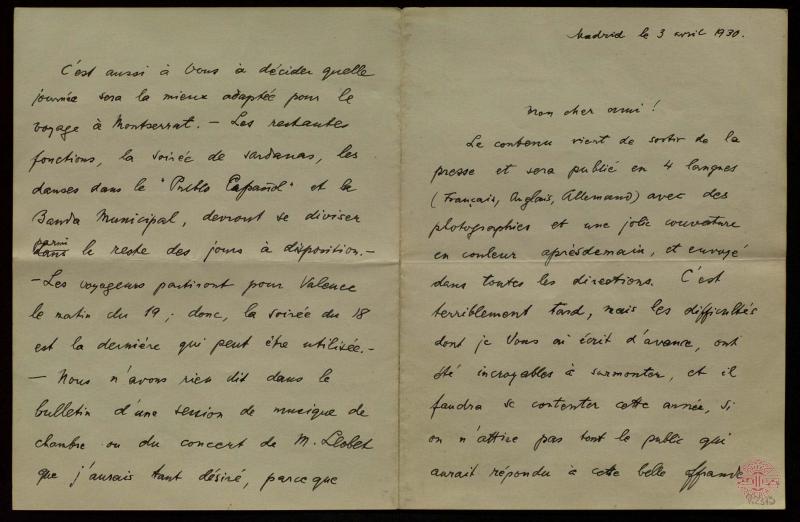 Madrid le 3 avril 1930.
Mon cher ami!
Le contenu vient de sortir de la
presse et sera publié en 4 langues
(Français, Anglais, Allemand) avec des
photographies et une jolie couverture
en couleur aprèsdemain, et envoyé
dans toutes les directions. C'est
terriblement tard, mais les difficultés
dont je Vous ai écrit d'avance, ont
été incroyables à surmonter, et il
faudra se contenter cette année, si
on n'attire pas tout le public qui
aurait répondu à cette belle offrande
C'est aussi à Vous à décider quelle
journée sera la mieux adaptée pour le
voyage à Montserrat. – Les restantes
fonctions, la soirée de sardanas, les
danses dans le "Pueblo Español" et la
Banda Municipal, devront se diviser
parmi
dans le reste des jours à disposition. –
– Les voyageurs partiront pour Valence
le matin du 19; donc, la soirée du 18
est la dernière qui peut être utilisée. –
– Nous n'avons rien dit dans le
bulletin d'une session de musique de
chambre ou du concert de M. Llobet
que j'aurais tant désiré, parce que